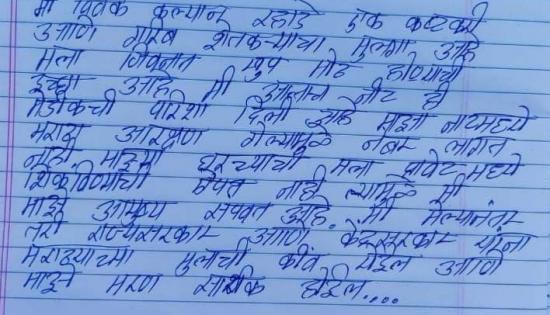 मी विवेक कल्याण रहाडे एक कष्टकरी
आणि गरिब शेतकऱ्याचा मुलगा आहे
मला जिवनात खुप मोठ होण्याची
इच्छा आहे मी आताच नीट ही
मेडीकची परिक्षा दिली आहे माझा नीटमध्ये
मराठा आरक्षण गेल्यामुळे नंबर लागत
नाही. माझ्या घरच्याची मला प्रावेट मध्ये
शिकविण्याची ऐपत नाही त्यामुळे मी
माझे आयुष्य संपवत आहे. मी मेल्यानंतर
तरी राज्यसरकार आणि केंद्रसरकार यांना
मराठ्याच्या मुलाची कीव येईल आणि
माझे मरण सार्थक होईल....